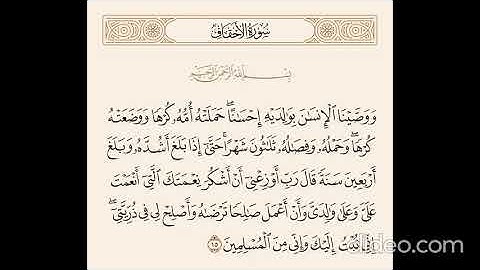 سُورَةُ الأَحْقَافِ
بِسْمِ اللَّهِ الرَّحْمَٰنِ الرَّحِيمِ
وَوَصَّيْنَا الْإِنسَانَ بِوَالِدَيْهِ إِحْسَانًا ۖ حَمَلَتْهُ أُمُّهُ كُرْهًا وَوَضَعَتْهُ
كُرْهًا ۖ وَحَمْلُهُ وَفِصَالُهُ ثَلَاثُونَ شَهْرًا ۚ حَتَّىٰ إِذَا بَلَغَ أَشُدَّهُ وَبَلَغَ
أَرْبَعِينَ سَنَةً قَالَ رَبِّ أَوْزِعْنِي أَنْ أَشْكُرَ نِعْمَتَكَ الَّتِي أَنْعَمْتَ
عَلَيَّ وَعَلَىٰ وَالِدَيَّ وَأَنْ أَعْمَلَ صَالِحًا تَرْضَاهُ وَأَصْلِحْ لِي فِي ذُرِّيَّتِي ۖ
إِنِّي تُبْتُ إِلَيْكَ وَإِنِّي مِنَ الْمُسْلِمِينَ ١٥